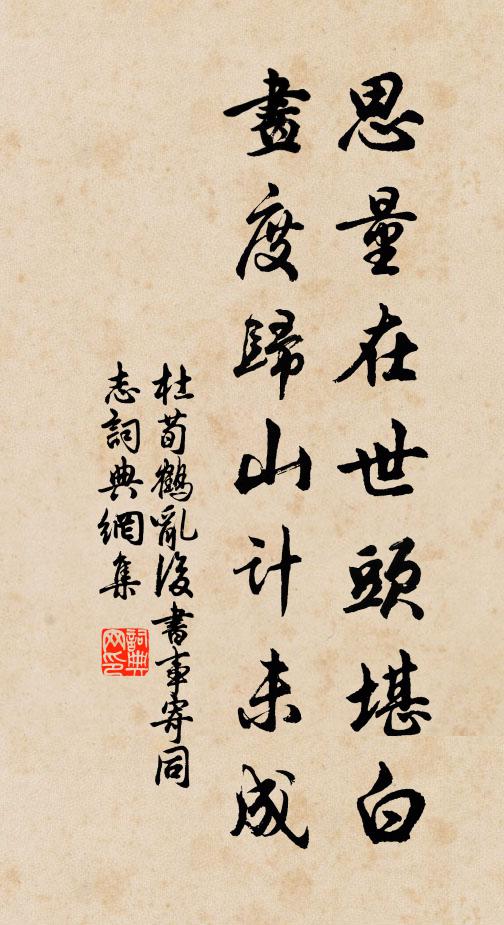 思量在世頭堪白
畫度歸山計未成
杜荀鶴亂後書事寄同
志詞典網集
詞典
网印